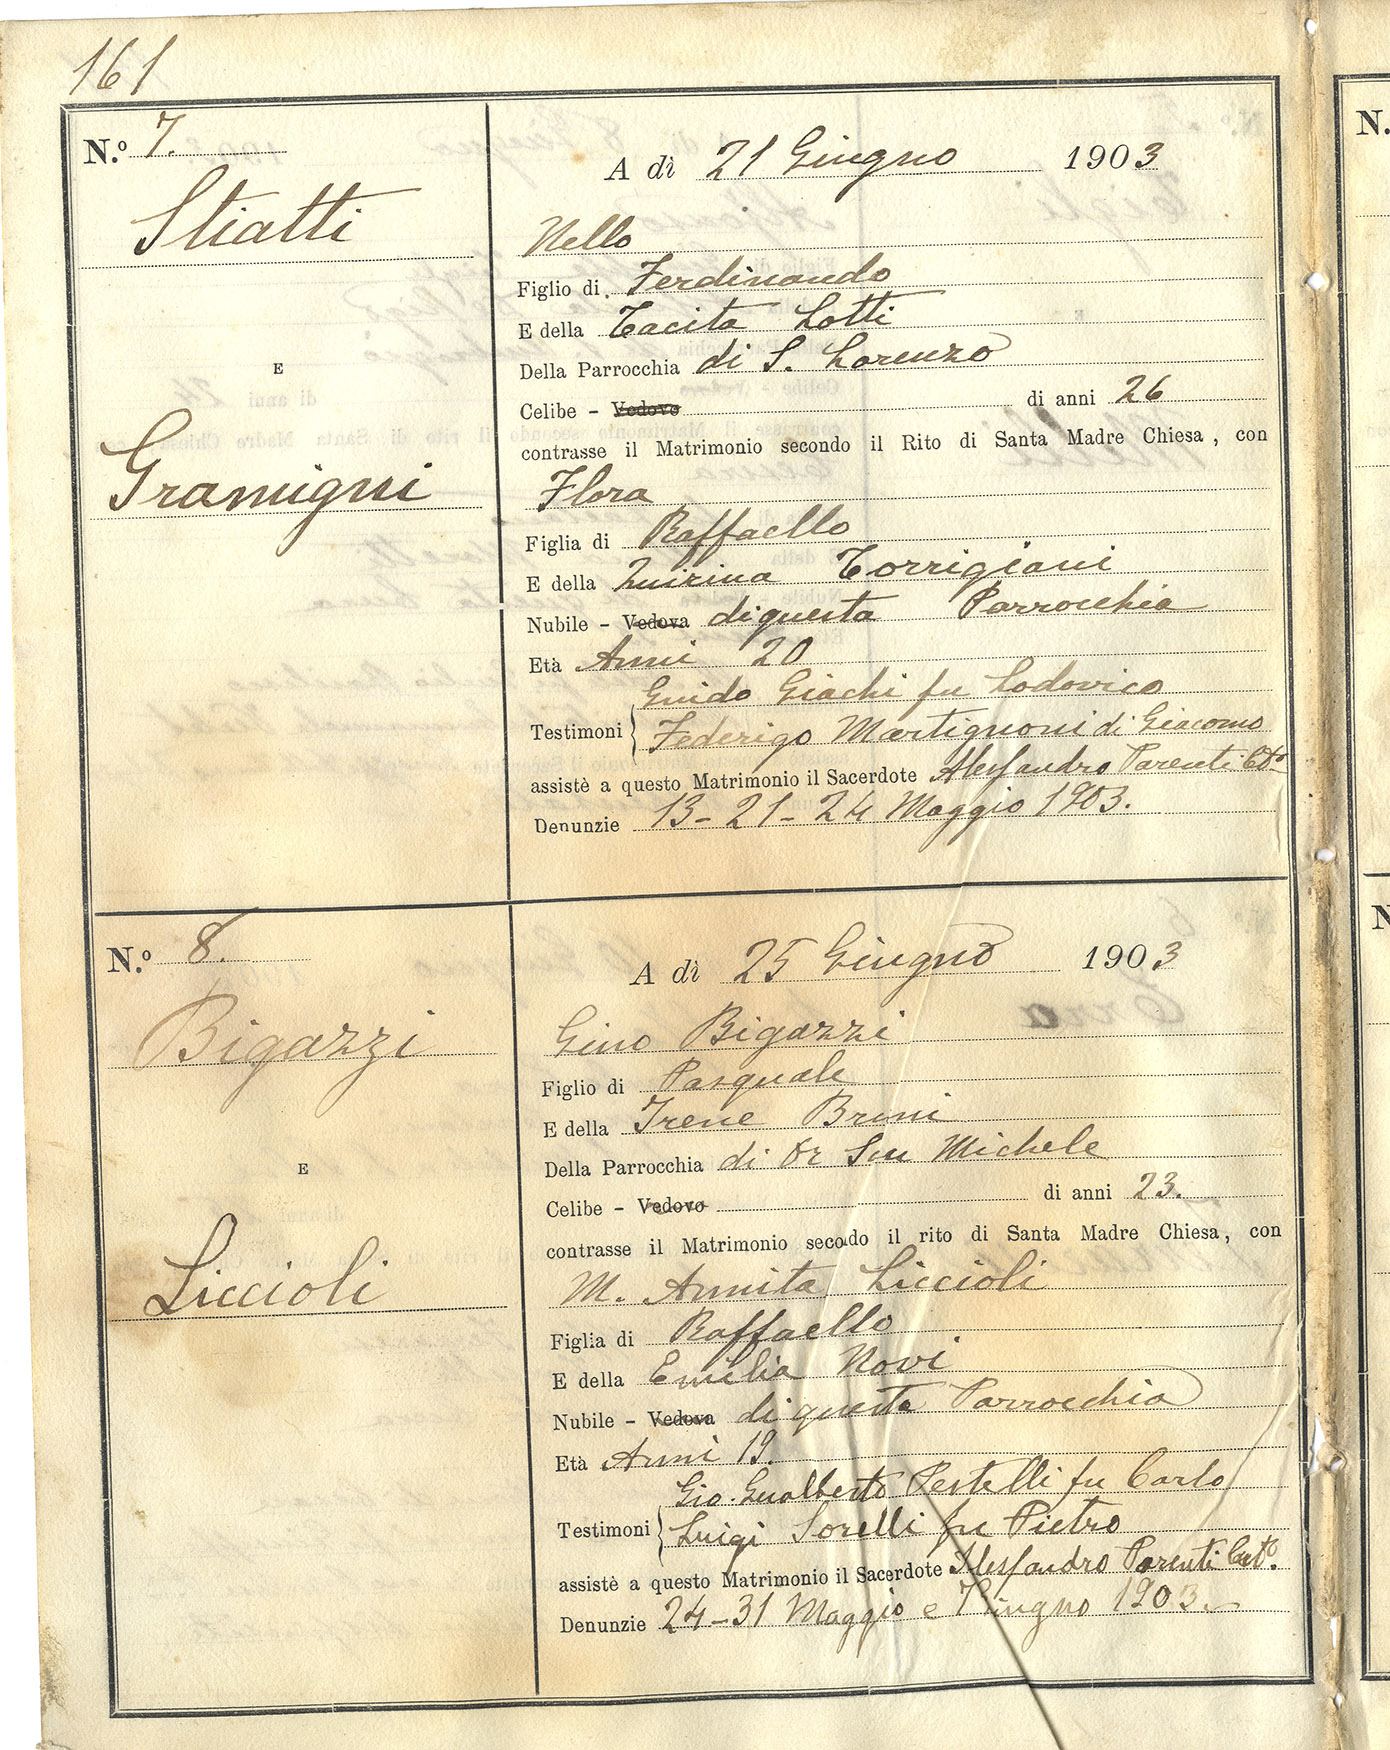 161
N.º 7.
Stiatti
E
Gramigni
A dì 21 Giugno 1903
Nello
Figlio di Ferdinando
E della Tacita Lotti
Della Parrocchia di S. Lorenzo
Celibe - Vedovo di anni 26
contrasse il Matrimonio secondo il Rito di Santa Madre Chiesa, con
Flora
Figlia di Raffaello
E della Quirina Torrigiani
Nubile - Vedova di questa Parrocchia
Età Anni 20
Guido Giachi fu Lodovico
Testimoni
Federigo Martignoni di Giacomo
assistè a questo Matrimonio il Sacerdote Alessandro Parenti
Denunzie 13-21-24 Maggio 1903.
N.º 8.
Bigazzi
E
Liccioli
A dì 25 Giugno 1903
Gino Bigazzi
Figlio di Pasquale
E della Irene Brini
Della Parrocchia di Or San Michele
Celibe - Vedovo di anni 23.
contrasse il Matrimonio secodo il rito di Santa Madre Chiesa, con
M. Annita Liccioli
Figlia di Raffaello
E della Emilia Novi
Nubile - Vedova di questa Parrocchia
Età Anni 19.
Gio. Gualberto Pestelli fu Carlo
Testimoni
Luigi Sorelli fu Pietro
assistè a questo Matrimonio il Sacerdote Alessandro Parenti Cur.º
Denunzie 24-31 Maggio e 7 Giugno 1903.
N.
N